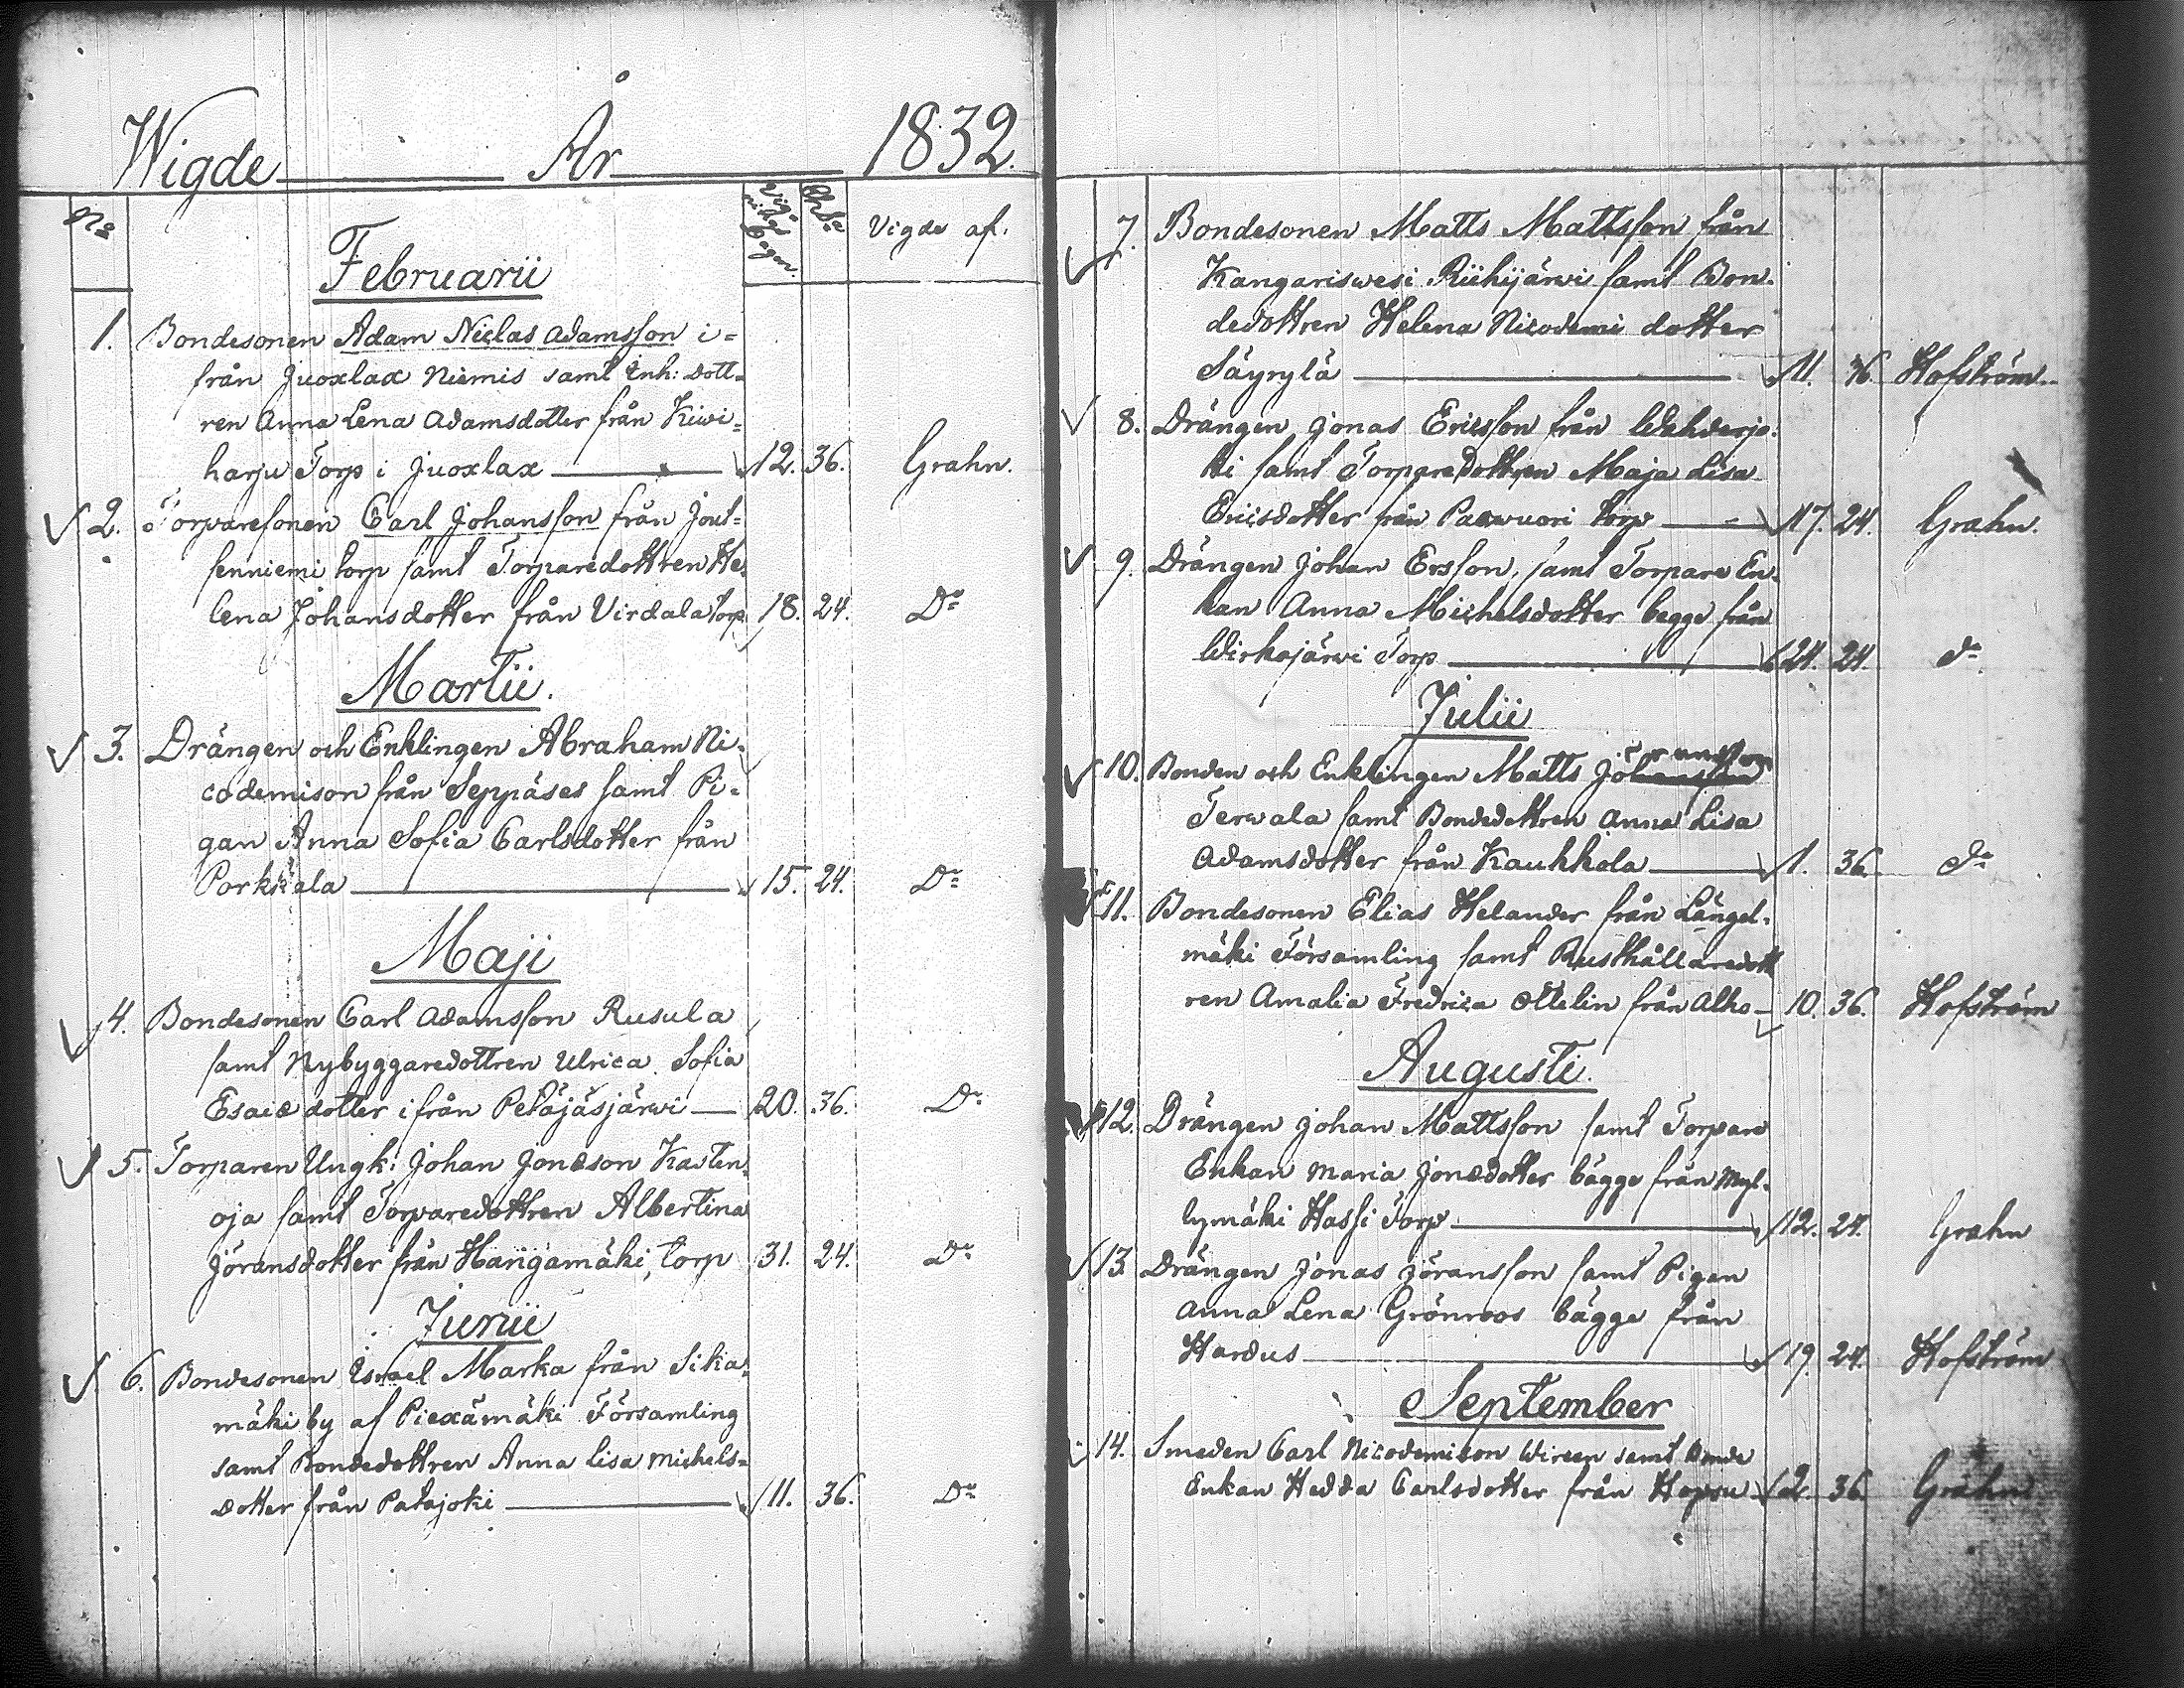 Wigde År 1832.
No Vigde af.
Februarii
1. Bondesonen Adam Niclas Adamsson i=
från Juoxlax Niemis samt Inh: Dott=
ren Anna Lena Adamsdotter från Kiwi=
harju Torp i Juoxlax 12. 36. Grahn.
2. Torparesonen Carl Johansson från Jout=
senniemi torp samt Torparedottren He=
lena Johansdotter från Virdala torp 18. 24. Do
Martii.
3. Drängen och Enklingen Abraham Ni=
codemison från Seppäses samt Pi=
gan Anna Sofia Carlsdotter från
Porkkala 15. 24. Do
Maji
4. Bondesonen Carl Adamsson Rusula
samt Nybyggaredottren Ulrica Sofia
Esaiæ dotter ifrån Petäjäsjärwi 20. 36. Do
5. Torparen Ungk: Johan Jonæson Kasten=
oja samt Torparedottren Albertina
Jöransdotter från Harjamäki torp 31. 24. Do
Junii
6. Bondesonen Israel Marka från Sika=
mäki by af Piexämäki Församling
samt Bondedottren Anna Lisa Michels=
dotter från Patajoki 11. 36. Do
7. Bondesonen Matts Mattsson från
Kangariswesi Riihijärwi samt Bon=
dedottren Helena Nicodemi dotter
Säyrylä 11. 36. Hofström
8. Drängen Jonas Ericsson från
samt Torparedottren Maja Lisa
Ericsdotter från Paawuori torp 17. 24. Grahn.
9. Drängen Johan Ersson, samt Torpare En=
kan Anna Michelsdotter begge från
Wirkajärwi Torp 24. 24. do
Julii
10. Bonden och Enklingen Matts Jöransson
Terwala samt Bondedottren Anna Lisa
Adamsdotter från Kauhkola 1. 36. do
11. Bondesonen Elias Helander från Längel=
mäki Församling samt Rusthållaredott
ren Amalia Fredrica Ottelin från Alho 10. 36. Hofström
Augusti.
12. Drängen Johan Mattsson samt Torpare
Enkan Maria Jonædotter bägge från Myl=
lymäki Hassi Torp 12. 24. Grahn
13 Drängen Jonas Jöransson samt Pigan
Anna Lena Grönroos bägge från
Hardus 19. 24. Hofström
September
14. Smeden Carl Nicodemison Wireen samt Bonde
Enkan Hedda Carlsdotter från Hopsu 2. 36. Grahn